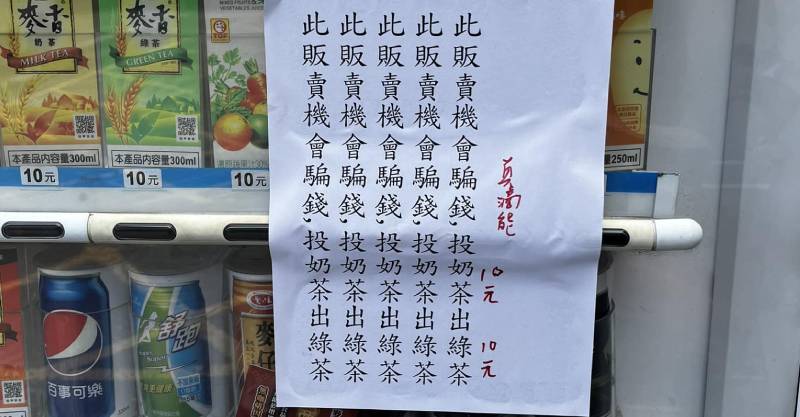 麥香
奶茶
MILK TEA
本產品內容量300ml
麥香
綠茶
GREEN TEA
本產品內容量300ml
TOP
250ml
10元
10元
10元
此販賣機會騙錢,投奶茶出綠茶
此販賣機會騙錢,投奶茶出綠茶
此販賣機會騙錢,投奶茶出綠茶
此販賣機會騙錢,投奶茶出綠茶
此販賣機會騙錢,投奶茶出綠茶
真滴能 10元 10元
百事可樂
舒跑